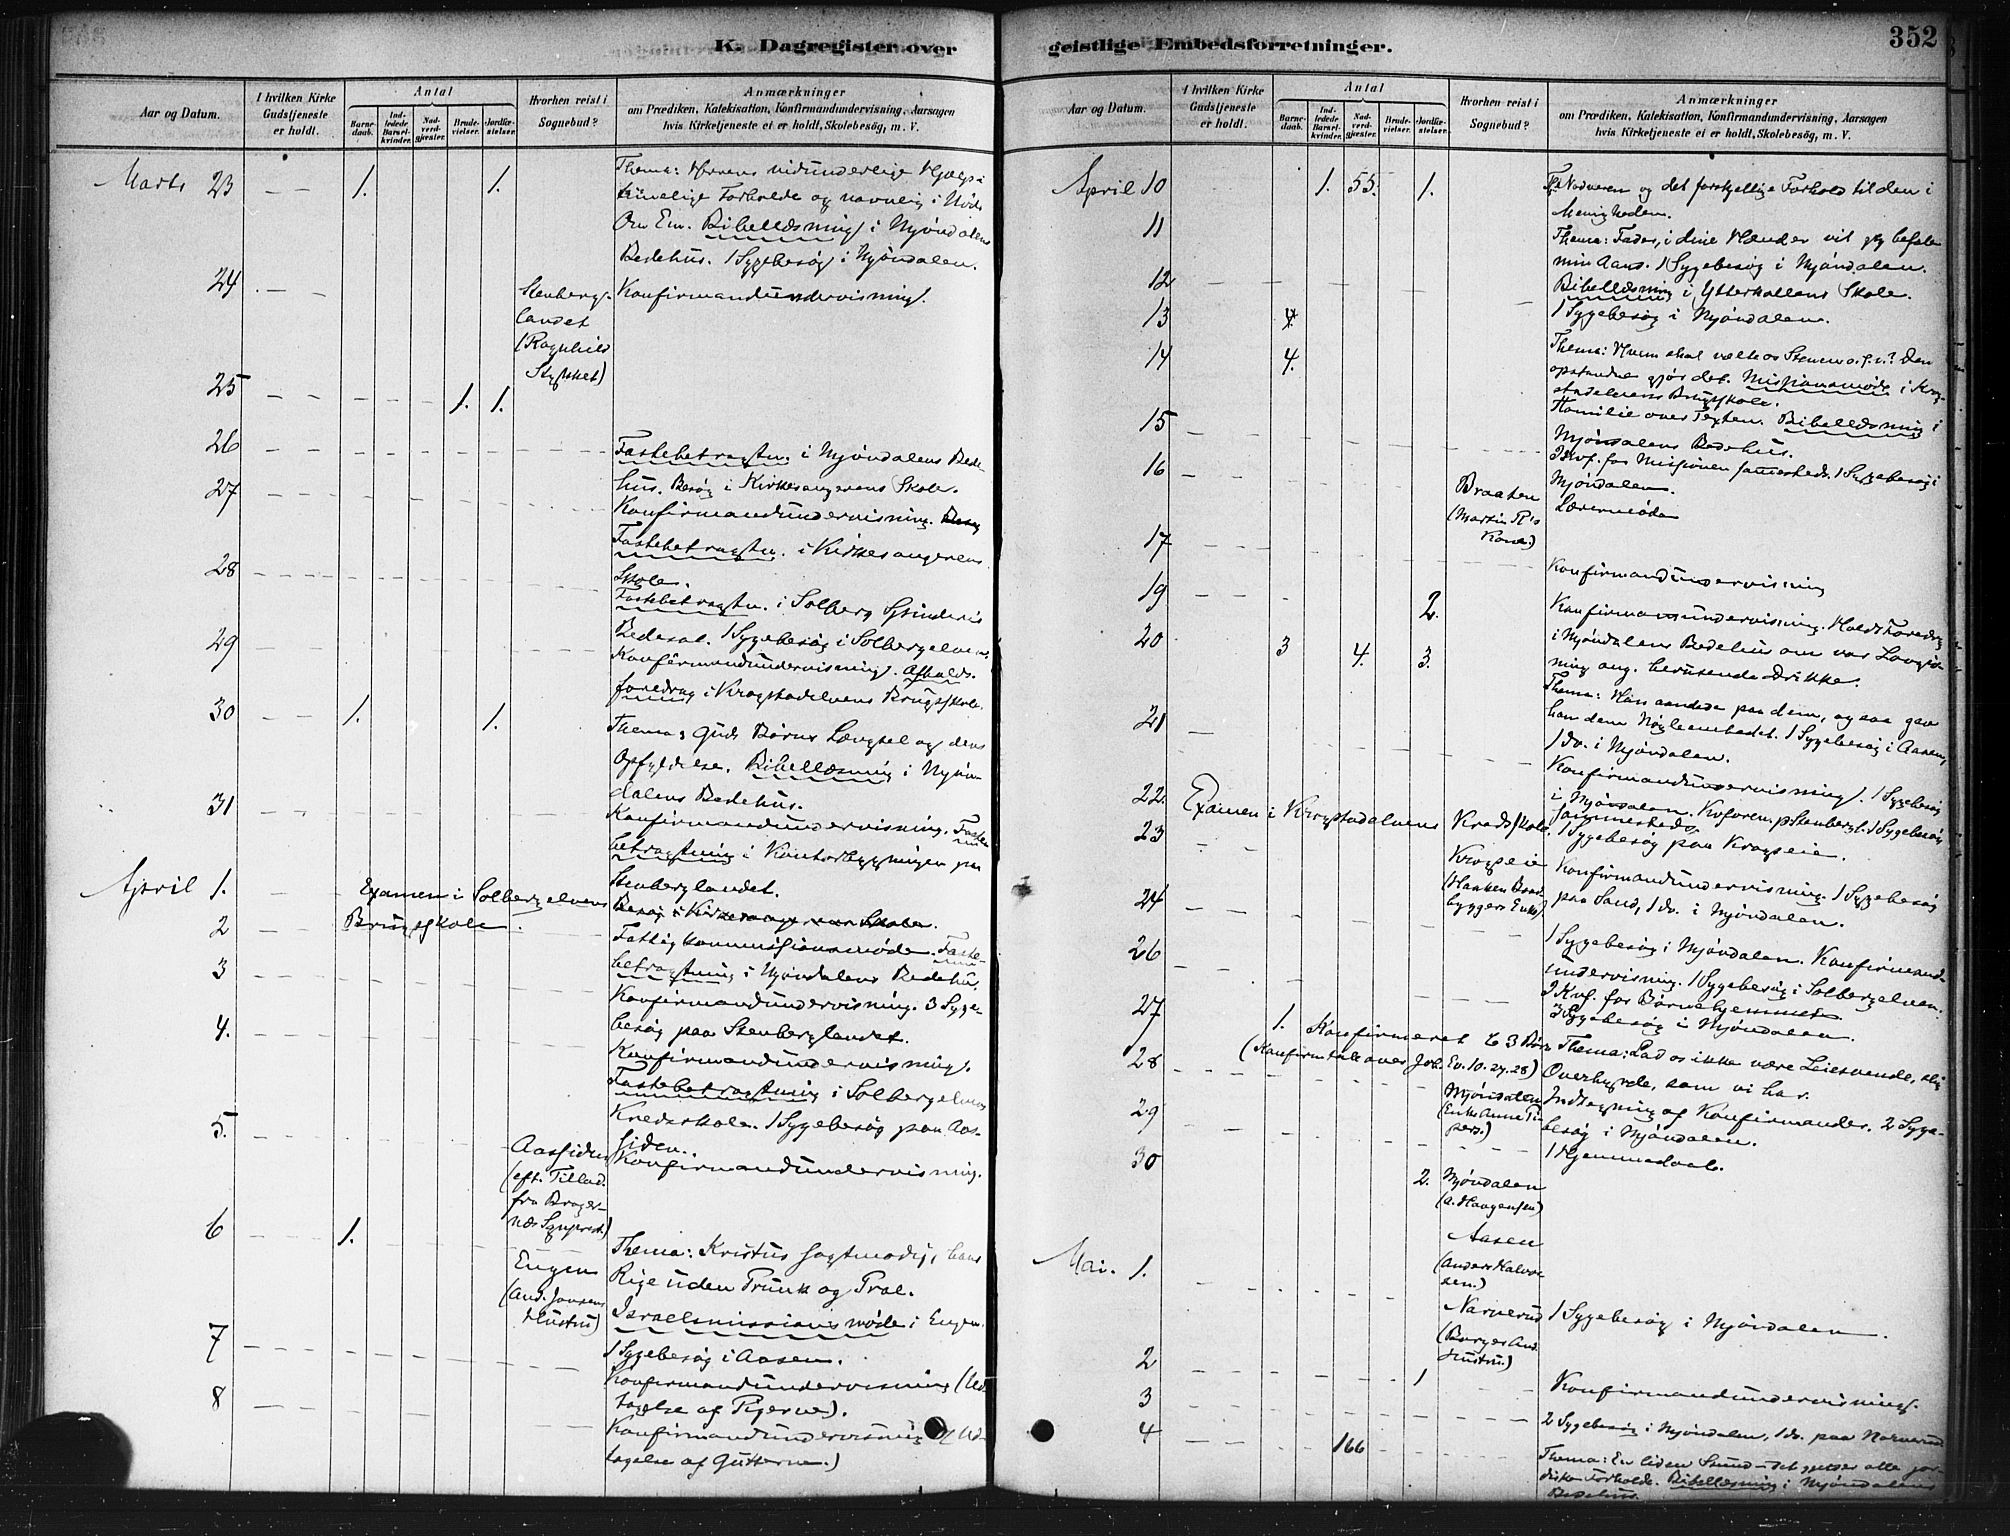 K. Dagregister over
geistlige Embedsforretninger.
352
Aar og Datum.
I hvilken Kirke
Gudstjeneste
er holdt.
Antal
Barne-
daab.
Ind-
ledede
Barsel-
kvinder.
Nad-
verd-
gjester.
Brude-
vielser.
Jordfæ-
stelser.
Hvorhen reist i
Sognebud?
Anmærkninger
om Prædiken, Katekisation, Konfirmandundervisning, Aarsagen
hvis Kirketjeneste ei er holdt, Skolebesøg, m. V.
Marts 23 1. 1. Thema: Herrens vidunderlige Hjælp i
timelige Forholde og navnlig i Nød.
Om Em. Bibellæsning i Mjøndalens
Bedehus. 1 Sygebesøg i Mjøndalen.
24 Stenbergs-
landet
(Ragnhild
Stykket)
Konfirmandundervisning.
25 1. 1.
26 Fastebetragtn. i Mjøndalens Bede-
hus. Besøg i Kirkesangerens Skole.
27 Konfirmandundervisning.
Fastebetragtn. i Kirkesangerens
Skole.
28 Fastebetragtn. i Solberg Spinderis
Bedesal. 1 Sygebesøg i Solbergelven.
29 Konfirmandundervisning. Afholds-
foredrag i Krogstadelvens Brugsskole.
30 1. 1. Thema: Guds Børns Længsel og dens
Opfyldelse. Bibellæsning i Mjøn-
dalens Bedehus.
31 Konfirmandundervisning. Faste-
betragtning i Kontorbygningen paa
Stenberglandet.
April 1. Examen i Solbergelvens
Brugsskole.
Besøg i Kirkesangerens Skole.
2 Fattigkommissionsmøde. Faste-
betragtning i Mjøndalens Bedehus.
3 Konfirmandundervisning. 3 Syge-
besøg paa Stenberglandet.
4. Konfirmandundervisning.
Fastebetragtning i Solbergelvens
Kredsskole. 1 Sygebesøg paa Aas-
siden.
5. Aassiden
(eft. Tillad.
fra Brager-
næs Sgnprest.)
Konfirmandundervisning.
6 1. Eugen
(And. Jensens
Hustru)
Thema: Kristus sagtmodig, hans
Rige uden Prunk og Pral.
Israelsmissionsmøde i Engen.
7 1 Sygebesøg i Aasen.
Konfirmandundervisning (Ud-
tagelse af Pigerne).
8 Konfirmandundervisning (Ud-
tagelse af Gutterne.)
Aar og Datum.
I hvilken Kirke
Gudstjeneste
er holdt.
Antal
Barne-
daab.
Ind-
ledede
Barsel-
kvinder.
Nad-
verd-
gjester.
Brude-
vielser.
Jordfæ-
stelser.
Hvorhen reist i
Sognebud?
Anmærkninger
om Prædiken, Katekisation, Konfirmandundervisning, Aarsagen
hvis Kirketjeneste ei er holdt, Skolebesøg, m. V.
April 10 1. 55. 1. Th. Nadveren og det forskjellige Forhold til den i
Menigheden.
11 Thema: Fader, i dine Hænder vil jeg befale
min Aand. 1 Sygebesøg i Mjøndalen.
12 Bibellæsning i Ytterkollens Skole.
13 4 1 Sygebesøg i Mjøndalen.
14 4. Thema: Hvem skal vælte os Stenen o.s.v.? Den
opstandne gjør det. Missionsmøde i Krog-
stadelvens Brugsskole.
15 Homilie over Texten. Bibellæsning i
Mjøndalens Bedehus.
16 Braaten
(Martin R's
Kone.)
2 Kvf. for Missionen sammesteds. 1 Sygebesøg i
Mjøndalen.
Lærermøde
17 Konfirmandundervisning
19 2. Konfirmandundervisning. Holdt Foredrag
i Mjøndalens Bedehus om vor Lovgiv-
ning ang. berusende Drikke.
20 3 4. 3. Thema: Han aandede paa dem, og saa gav
han dem Nøgleembedet. 1 Sygebesøg i Aasen,
1 do. i Mjøndalen.
21 Konfirmandundervisning. 1 Sygebesøg
i Mjøndalen. Kvforen. p. Stenbergl. 1 Sygebesøg
sammesteds.
22. Examen i Krogstadelvens Kredsskole. 1 Sygebesøg paa Krogseie.
23 Krogseie
(Haaken Baad-
byggers Enke)
Konfirmandundervisning. 1 Sygebesøg
paa Sand, 1 do. i Mjøndalen.
24 1 Sygebesøg i Mjøndalen. Konfirmand-
undervisning. 1 Sygebesøg i Solbergelven.
26 2 Kvf. for Børnehjemmet
3 Sygebesøg i Mjøndalen.
27 1. Konfirmeret 63 Børn
(Konfirmtale over Joh. Ev. 10. 27. 28)
Thema: Lad os ikke være Leiesvende, slig
Overhyrde, som vi har.
28 Mjøndalen
(Enke Anne
pers.)
Indtegning af Konfirmander. 2 Syge-
besøg i Mjøndalen.
29 1 Hjemmedaab.
30 2. Mjøndalen
(A. Haagensen)
Aasen
(Anders Halvor-
sen.)
Mai. 1. Narverud
(Borger And.
Hustru.)
1 Sygebesøg i Mjøndalen.
2 1
3 Konfirmandundervisning.
2 Sygebesøg i Mjøndalen, 1 do. paa Narverud.
4 166 Thema: En liden Stund – det gjelder alle jor-
diske Forholde. Bibellæsning i Mjøndalens
Bedehus.